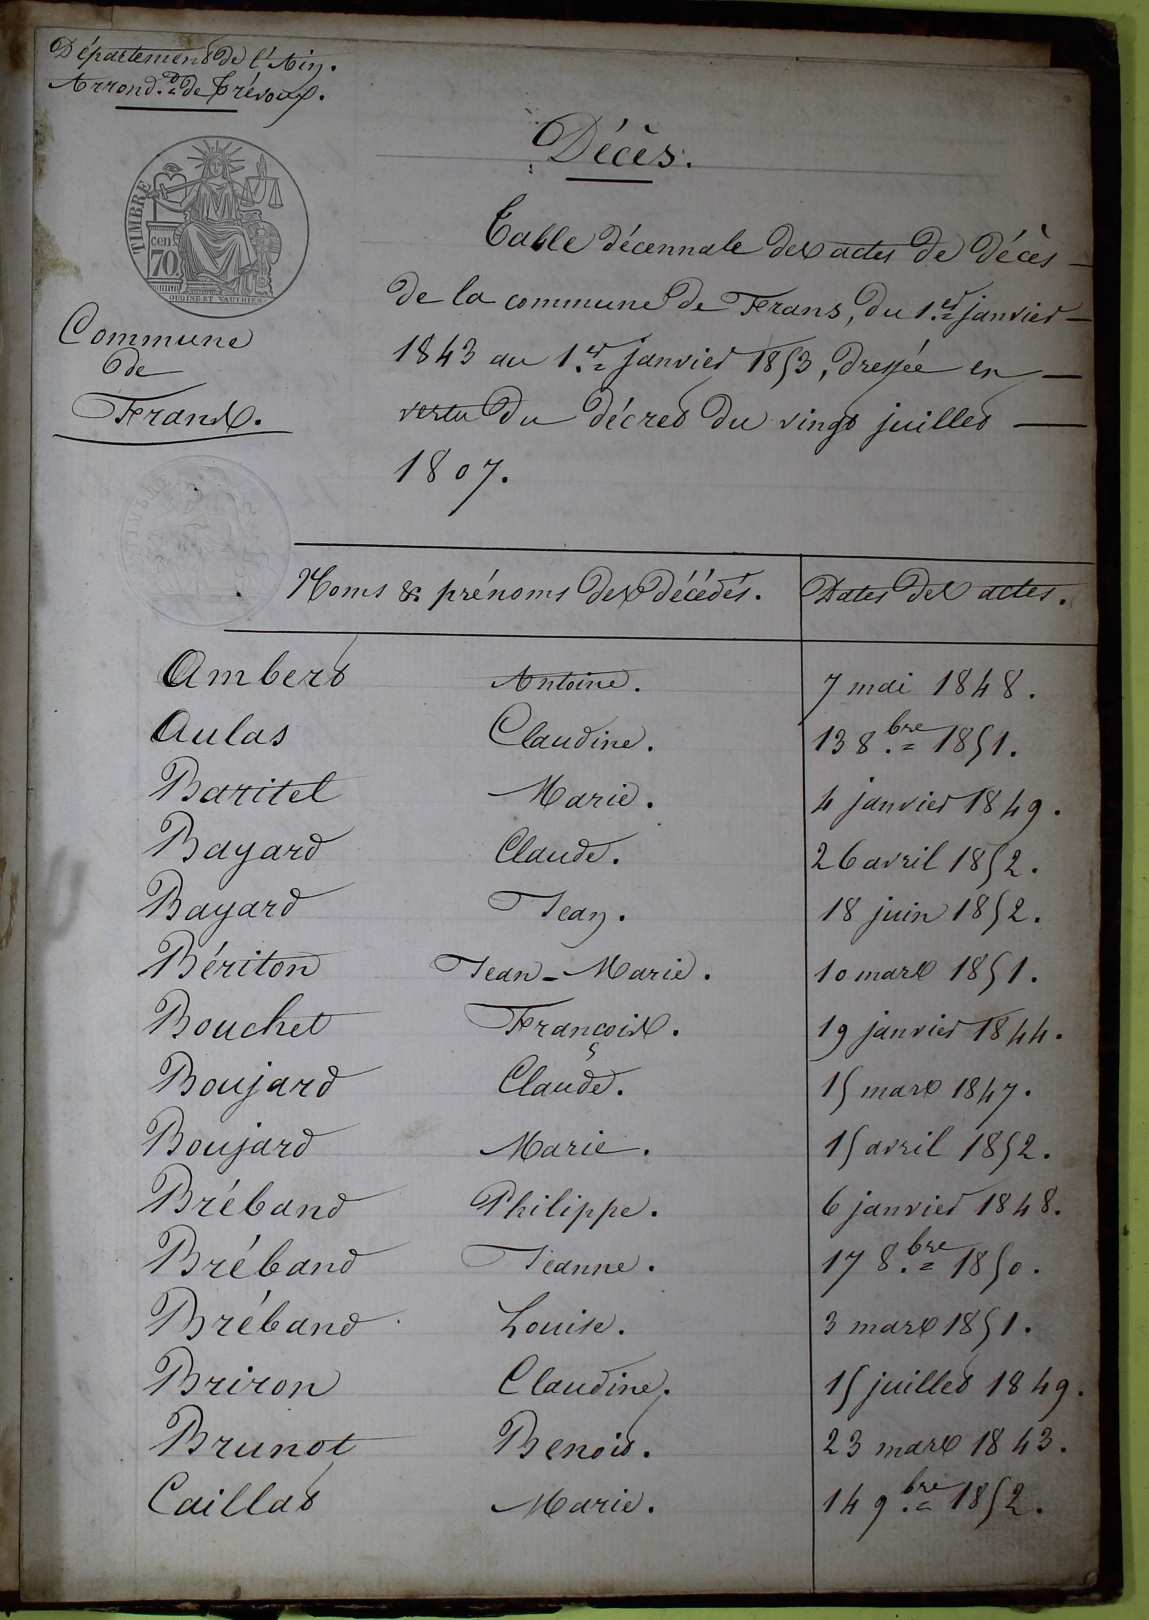 Département de l'Ain.
Arrond.t de Trévoux.
TIMBRE
cen
70
OUDINÉ ET VAUTHIER
Commune
de
Frans.
Décès.
Table décennale des actes de décès
de la commune de Frans, du 1.er janvier
1843 au 1.er janvier 1853, dressée en
vertu du décret du vingt juillet
1807.
Noms & prénoms des décédés. Dates des actes.
Ambert Antoine. 7 mai 1848.
Aulas Claudine. 13 8.bre 1851.
Baritel Marie. 4 janvier 1849.
Bayard Claude. 26 avril 1852.
Bayard Jean. 18 juin 1852.
Bériton Jean-Marie. 10 mars 1851.
Bouchet François. 19 janvier 1844.
Boujard Claude. 15 mars 1847.
Boujard Marie. 15 avril 1852.
Bréband Philippe. 6 janvier 1848.
Bréband Jeanne. 17 8.bre 1850.
Bréband Louise. 3 mars 1851.
Briron Claudine. 15 juillet 1849.
Brunot Benoit. 23 mars 1843.
Caillat Marie. 14 9.bre 1852.